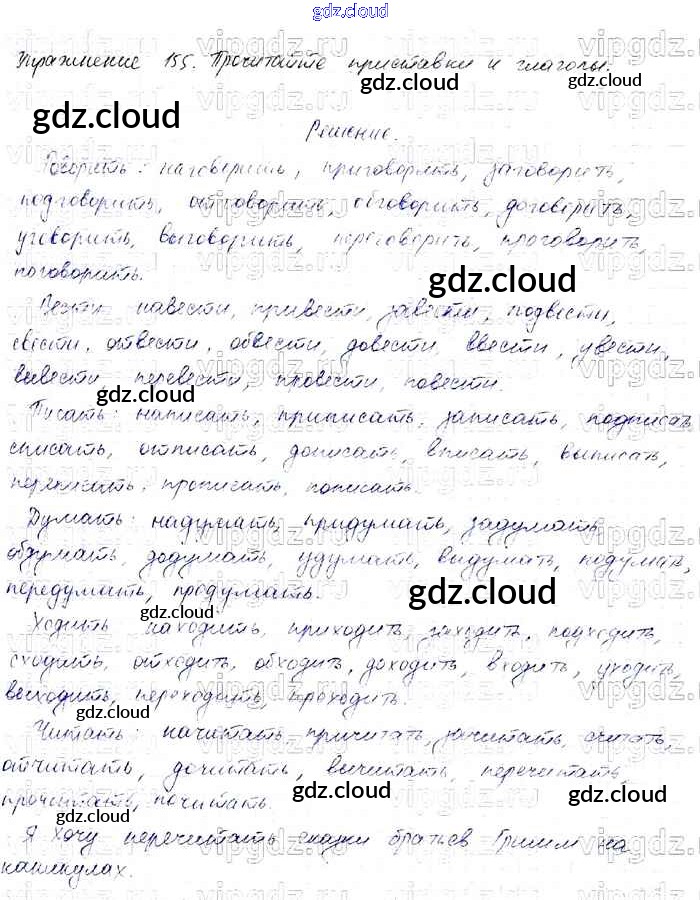 gdz.cloud
Упражнение 155. Прочитайте приставки и глаголы.
gdz.cloud
gdz.cloud
Решение.
Говорить: наговорить, приговорить, заговорить,
подговорить, отговорить, обговорить, договорить,
уговорить, выговорить, переговорить, проговорить,
поговорить.
gdz.cloud
Вести навести, привести, завести, подвести,
свести, отвести, обвести, довести, ввести, увести,
вывести, перевести, провести, повести.
gdz.cloud
Писать: написать, приписать, записать, подписать
списать, отписать, дописать, вписать, выписать,
переписать, прописать, пописать.
gdz.cloud
Думать: надумать, придумать, задумать
обдумать, додумать, удумать, выдумать, подумать,
передумать, продумать.
gdz.cloud
gdz.cloud
Ходить находить, приходить, заходить, подходить,
сходить, отходить, обходить, доходить, входить, уходить,
выходить, переходить, проходить.
gdz.cloud
gdz.cloud
Читать: начитать причитать, зачитать, считать,
отчитать, дочитать, вычитать, перечитать,
прочитать, почитать.
gdz.cloud
gdz.cloud
Я хочу перечитать сказки братьев Гримм на
каникулах.
gdz.cloud